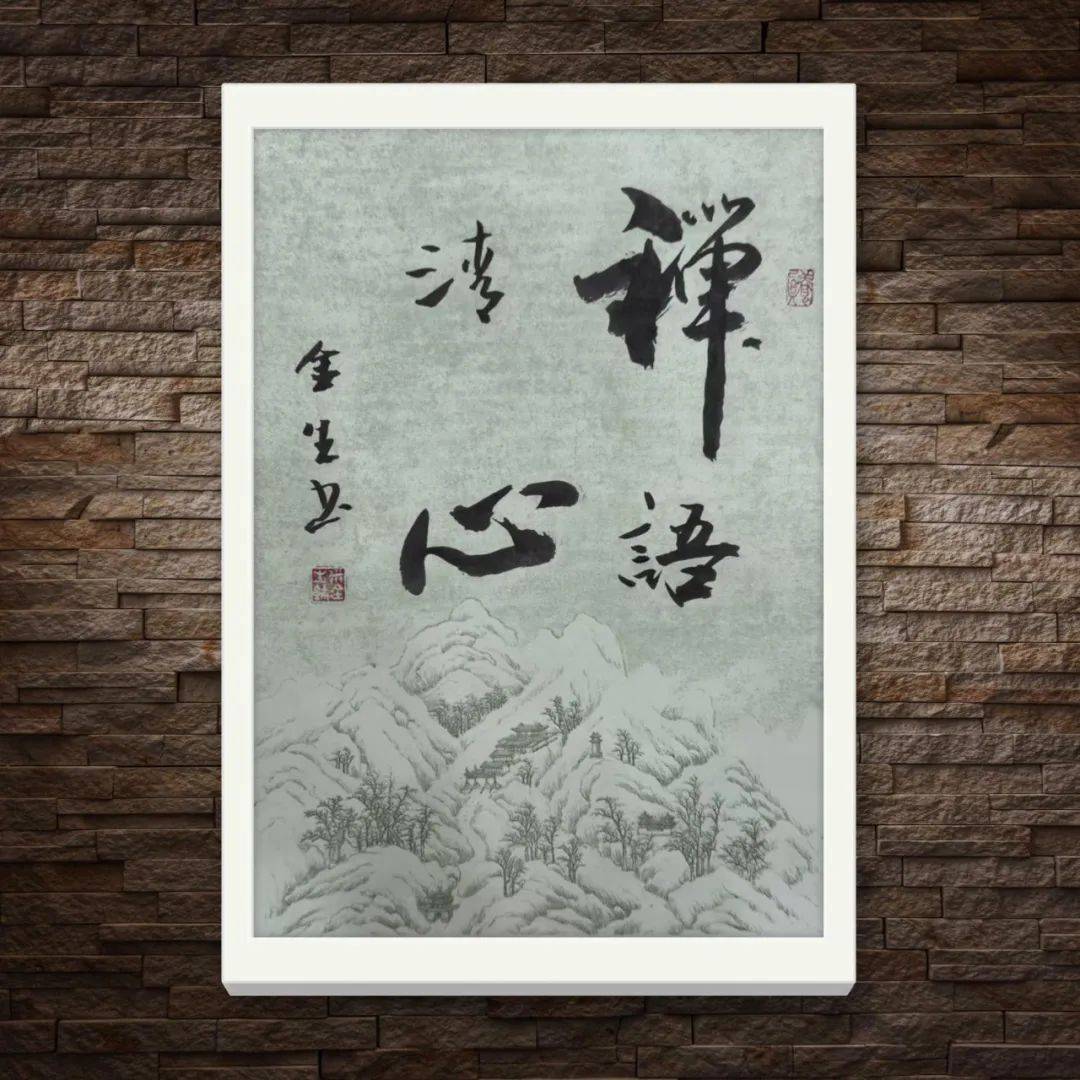 禪語
清心
金生书